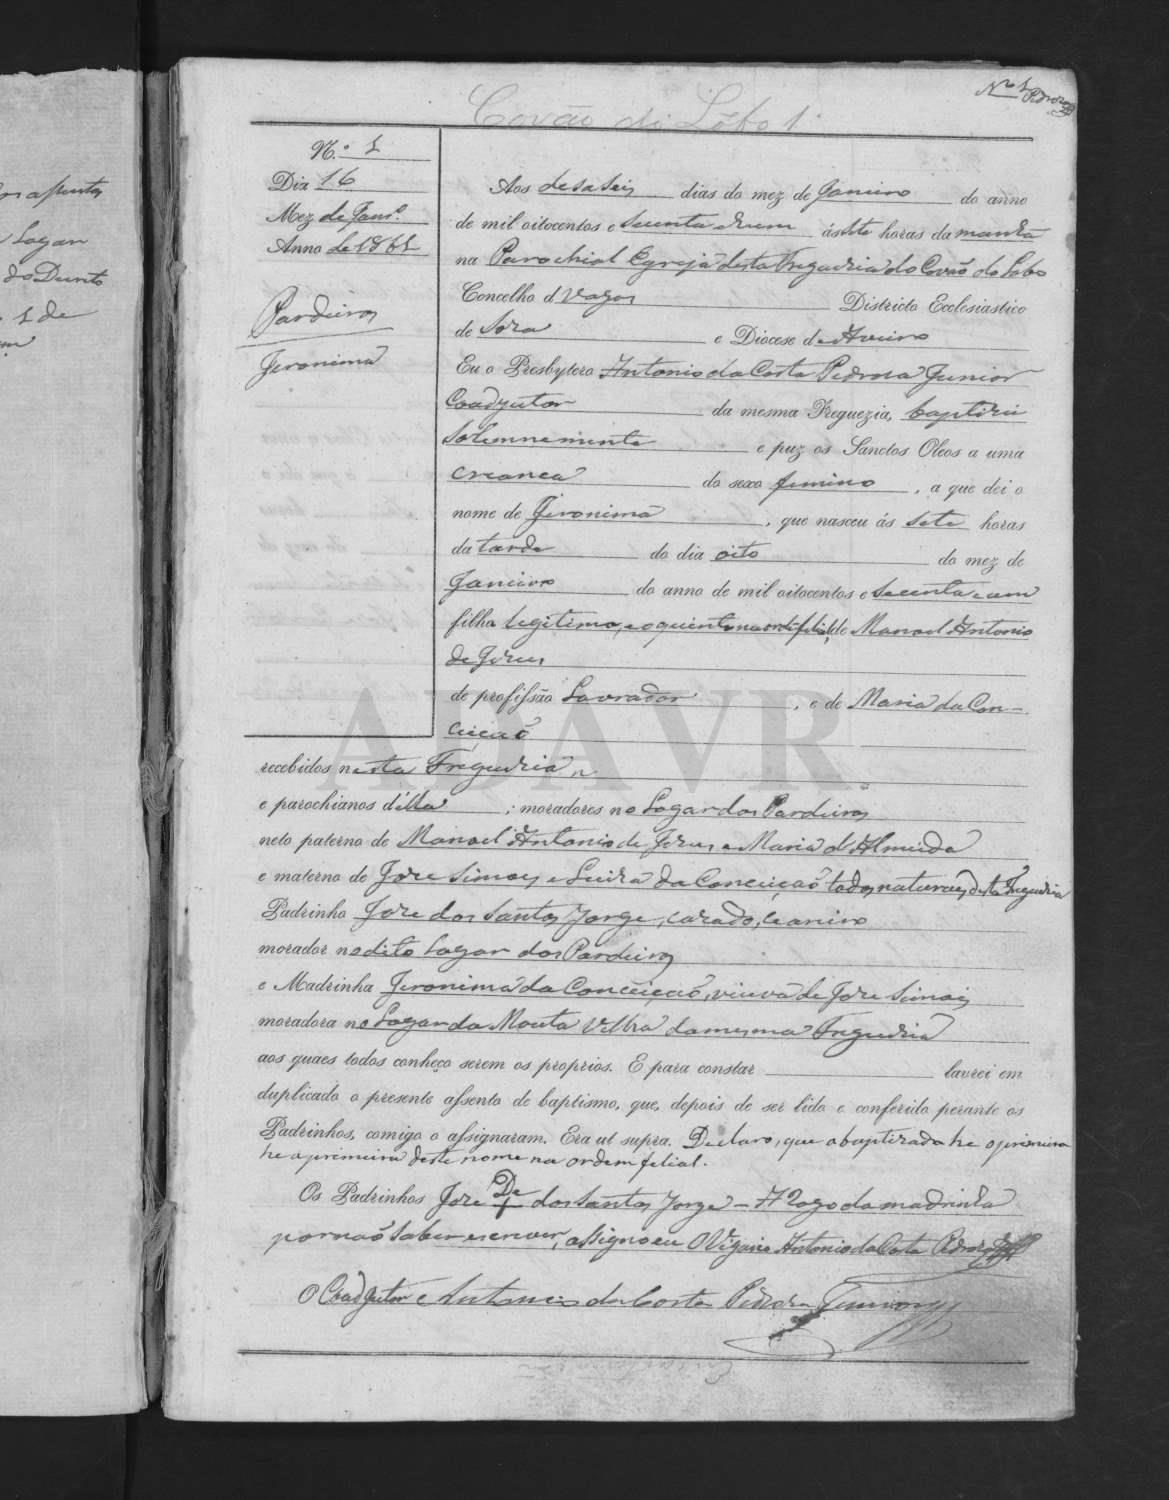 Nº 1 Pedroza
Covão do Lôbo 1
N.º 1
Dia 16
Mez de Janrº
Anno de 1861
Pardeiros
Jeronima
Aos desaseis dias do mez de Janeiro do anno
de mil oitocentos e secenta e hum ás sete horas da manhã
na Parochial Egreja desta Freguezia do Covão do Lobo
Concelho d Vagos Districto Ecclesiastico
de Soza e Diocese de Aveiro
Eu o Presbytero Antonio da Costa Pedroza Junior
Coadjutor da mesma Freguezia, baptizei
Solemnemente e puz os Sanctos Oleos a uma
creança do sexo femino, a que dei o
nome de Jeronima, que nasceu ás sete horas
da tarde do dia oito do mez de
Janeiro do anno de mil oitocentos e secenta e um
filha legitima, e o quinto na ordem filial, de Manoel Antonio
de Jezus
de profissão Lavrador, e de Maria da Con-
ceiçaõ
recebidos nesta Freguezia
e parochianos d'ella; moradores no Logar dos Pardeiros
neto paterno de Manoel Antonio de Jezus e Maria d'Almeida
e materno de Joze Simoes e Luiza da Conceiçaõ todos naturaes desta Freguezia
Padrinho Joze dos Santos Jorge, cazado,
morador no dito Logar dos Pardeiros
e Madrinha Jeronima da Conceiçaõ, viuva de Joze Simois
moradora no Logar da Mouta Velha da mesma Freguezia
aos quaes todos conheço serem os proprios. E para constar lavrei em
duplicado o presente assento de baptismo, que, depois de ser lido e conferido perante os
Padrinhos, comigo o assignaram. Era ut supra. Declaro, que a baptizada he a primeira
he a primeira deste nome na ordem filial.
Os Padrinhos Joze De dos Santos Jorge - A Rogo da madrinha
por naõ saber escrever, assigno eu O Vigario Antonio da Costa Pedroza
O Coadjutor Antonio da Costa Pedroza Junior
ADAVR